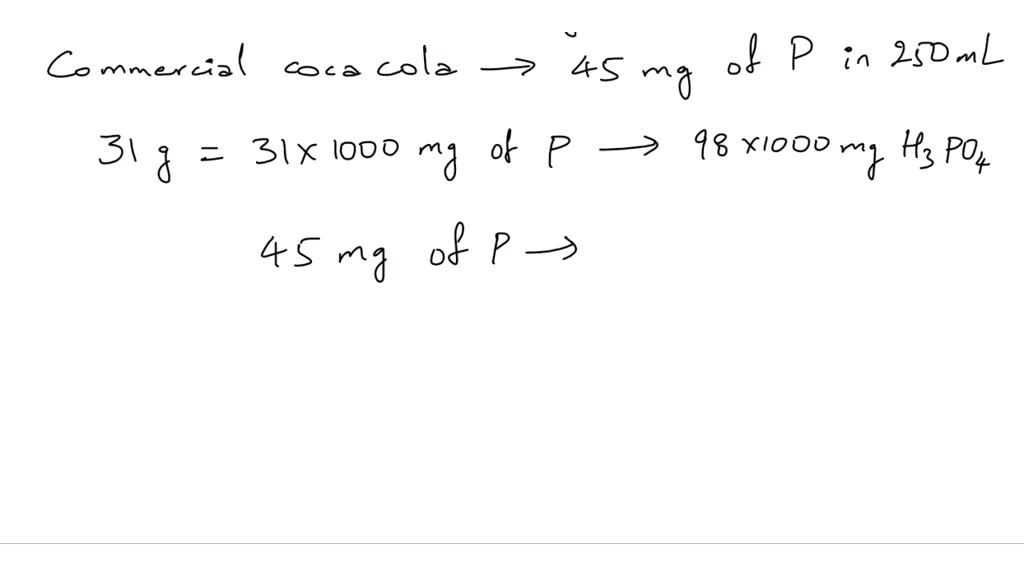 Commercial coca cola → 45 mg of P in 250 mL
31 g = 31 × 1000 mg of P → 98 × 1000 mg H₃PO₄
45 mg of P →